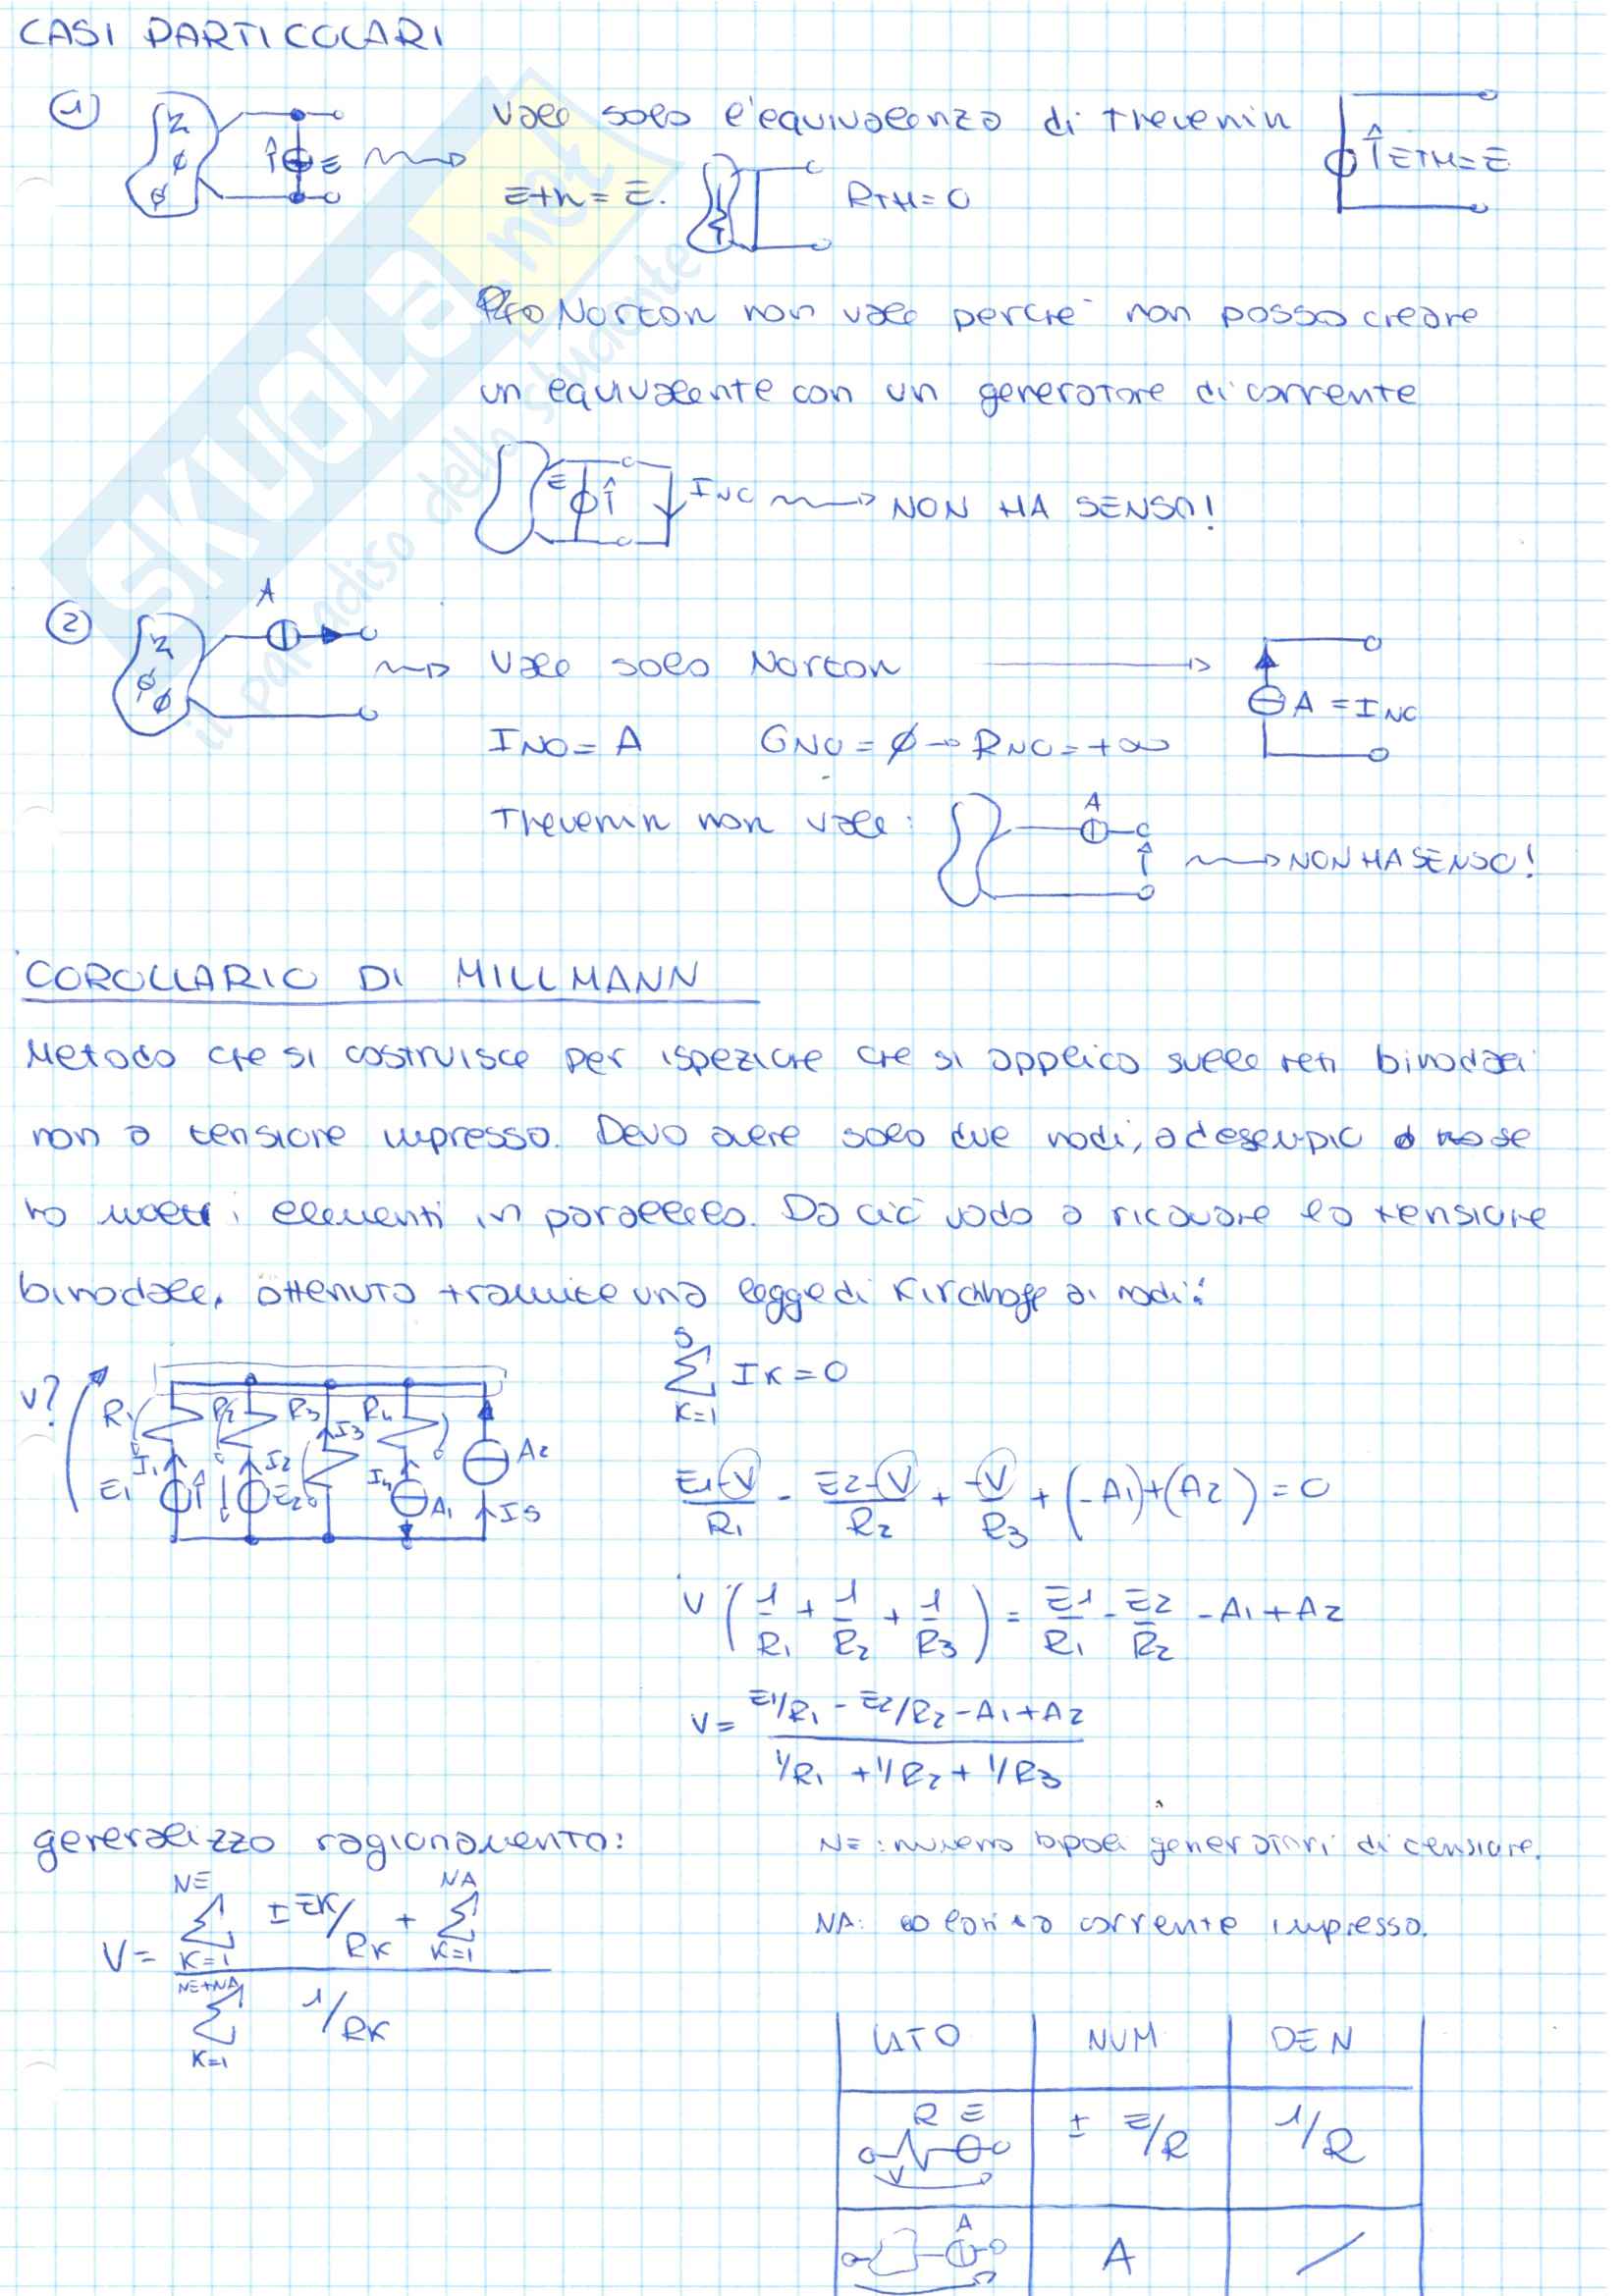 CASI PARTICOLARI
1 Vale solo l'equivalenza di Thevenin
E
Eth = E. RTH = 0
ETH = E
Norton non vale perche' non posso creare
un equivalente con un generatore di corrente
E INO NON HA SENSO!
2 A
Vale solo Norton
A = INO
INO = A GNO = ∅ → RNO = +∞
Thevenin non vale: A NON HA SENSO!
COROLLARIO DI MILLMANN
Metodo che si costruisce per ispezione che si applica sulle reti binodali
non a tensione impressa. Devo avere solo due nodi, ad esempio se
ho molti elementi in parallelo. Da ciò vado a ricavare la tensione
binodale, ottenuta tramite una legge di Kirchhoff ai nodi:
V? R1 R2 R3 R4 I1 I2 I3 I4 I5 E1 E2 A1 A2
5
∑ IK = 0
K=1
E1-V/R1 - E2-V/R2 + -V/R3 + (-A1)+(A2) = 0
V (1/R1 + 1/R2 + 1/R3) = E1/R1 - E2/R2 - A1 + A2
V = E1/R1 - E2/R2 - A1 + A2
1/R1 + 1/R2 + 1/R3
generalizzo ragionamento:
NE: numero generatori di tensione.
NE NA
V = ∑ ± EK/RK + ∑
K=1 K=1
NE+NA
∑ 1/RK
K=1
NA: corrente impressa.
LATO NUM DEN
R E ± E/R 1/R
V
A A /
SKUOLA.net
il paradiso dello studente